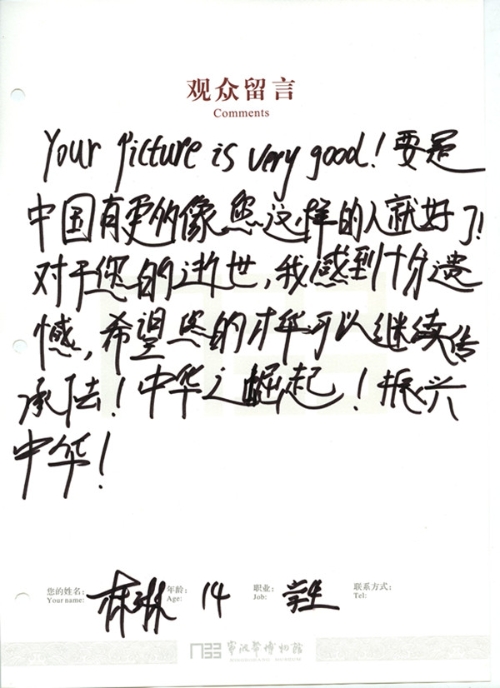 观众留言
Comments
Your picture is very good!要是
中国有更多像您这样的人就好了!
对于您的逝世,我感到十分遗
憾,希望您的才华可以继续传
承下去!中华之崛起!振兴
中华!
您的姓名: 林琳 年龄: 14 职业: 学生 联系方式:
Your name: Age: Job: Tel:
博物馆